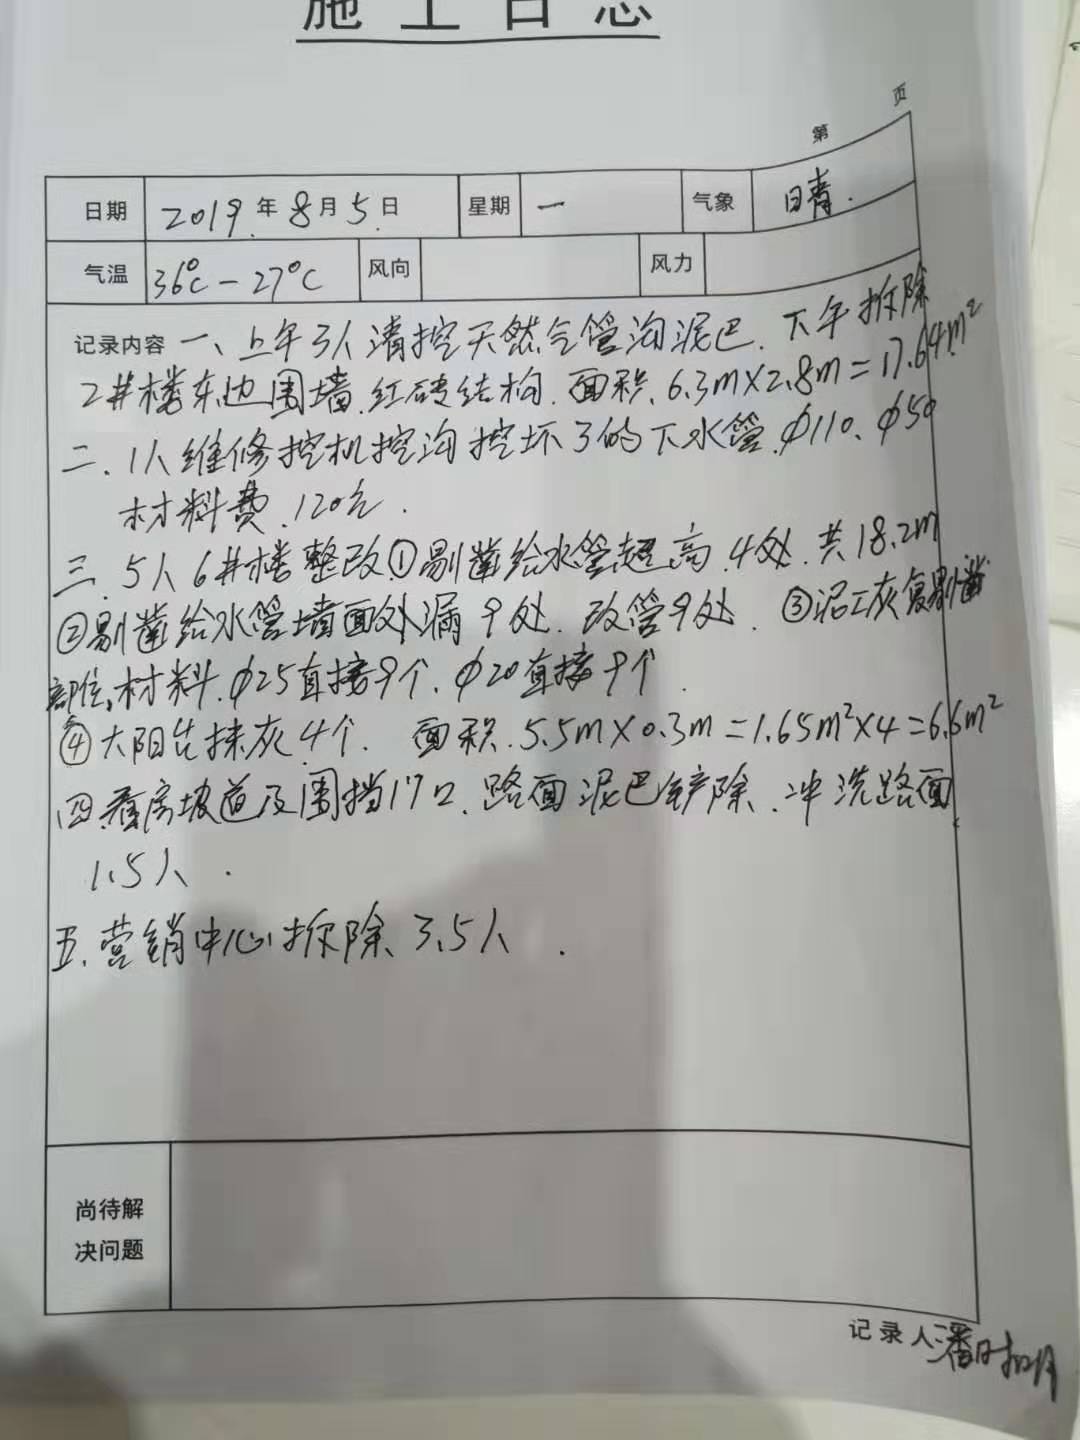 施工日志
第 页
日期 2019年8月5日 星期 一 气象 晴.
气温 36℃-27℃ 风向 风力
记录内容 一、上午3人清挖天然气管沟泥巴. 下午拆除
2#楼东边围墙.红砖结构.面积.6.3m×2.8m=17.64m²
二.1人维修挖机挖沟挖坏了的下水管.φ110.φ50
材料费.120元.
三.5人6#楼整改①剔凿给水管超高.4处.共18.2m
②剔凿给水管墙面处漏9处.改管9处.③泥工灰复剔凿
部位.材料.φ25直接9个.φ20直接9个.
④大阳台抹灰.4个. 面积.5.5m×0.3m=1.65m²×4=6.6m²
四.看房坡道及围挡门口.路面泥巴铲除.冲洗路面
1.5人.
五.营销中心拆除3.5人.
尚待解
决问题
记录人 潘